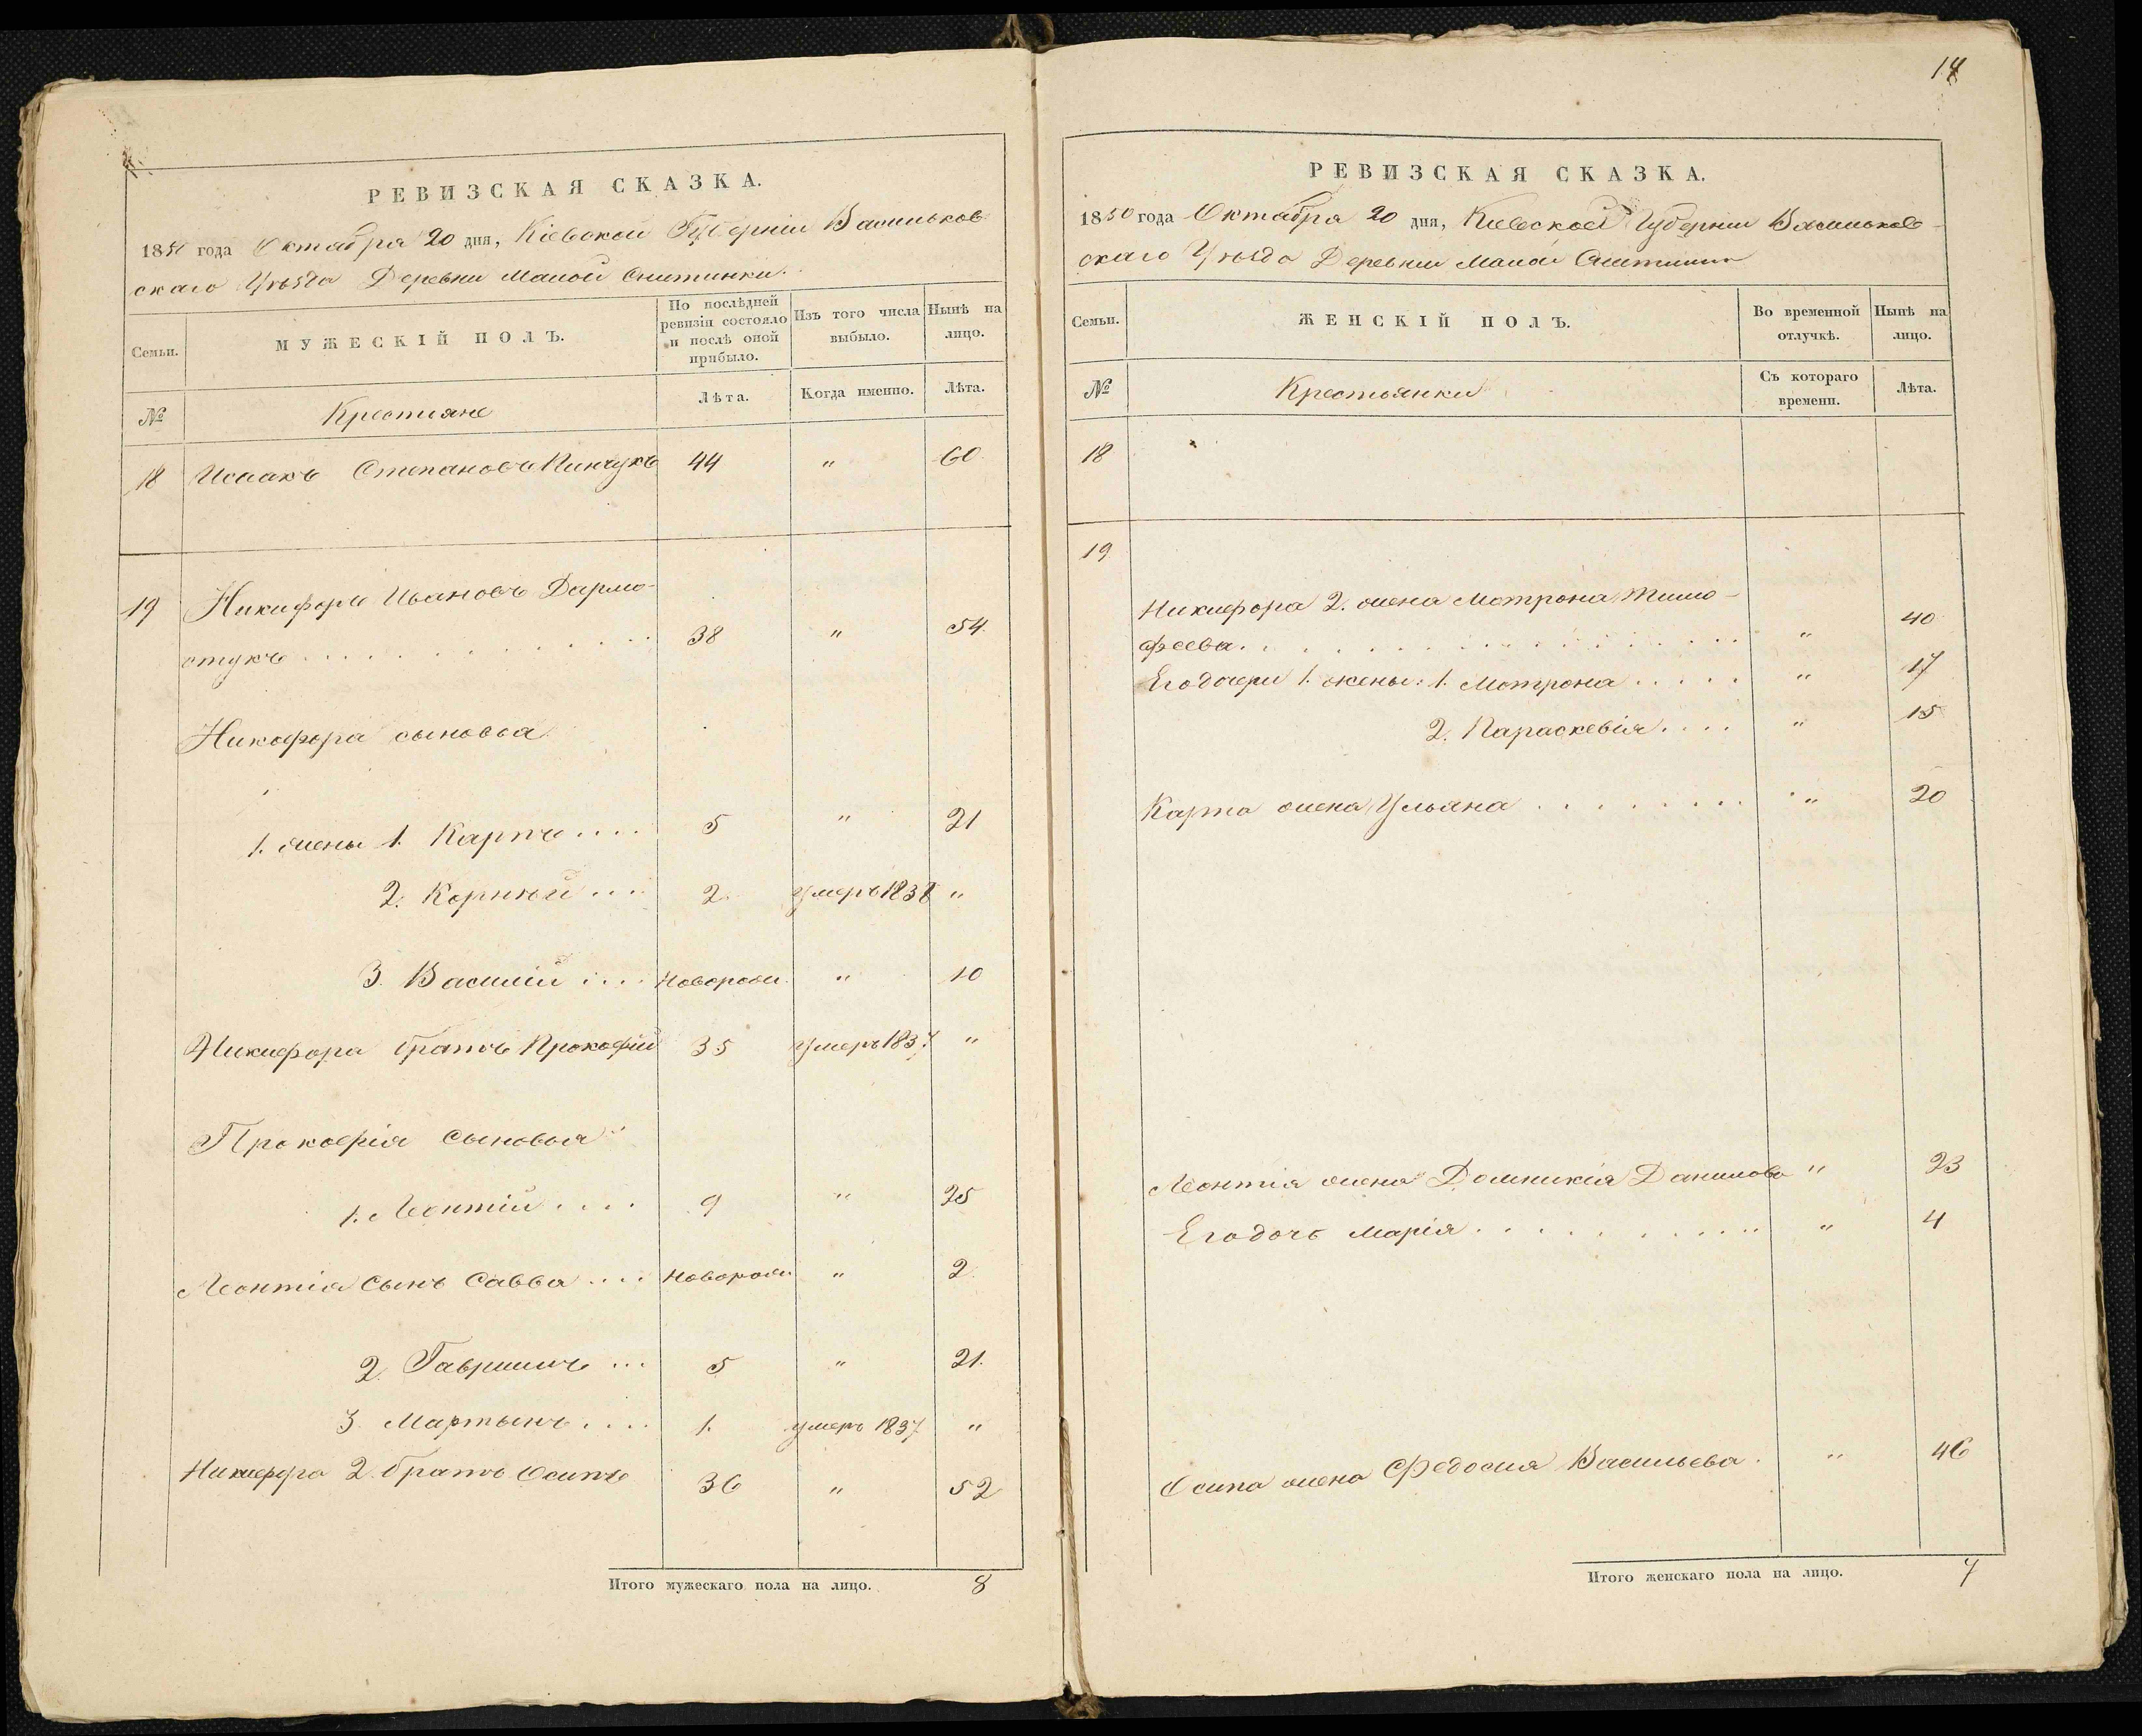 РЕВИЗСКАЯ СКАЗКА.
1850 года Октября 20 дня, Кіевской Губерніи Васильков-
скаго Уѣзда Деревни Малой Снитинки.
Семьи.
МУЖЕСКІЙ ПОЛЪ.
По послѣдней ревизіи состояло и послѣ оной прибыло.
Изъ того числа выбыло.
Нынѣ на лицо.
№
Крестияне
Лѣта.
Когда именно.
Лѣта.
18 Исаакъ Степановъ Пинчукъ 44 " 60
19 Никифоръ Ивановъ Дармо-
стукъ . . . . 38 " 54
Никифора сыновья
1. жены 1. Карпъ .... 5 " 21
2. Корнѣй ... 2. умеръ 1838 "
3. Василій .... новорож. " 10
Никифора братъ Прокофій 35 умеръ 1837 "
Прокофія сыновья
1. Леонтій .... 9 " 25
Леонтія сынъ Савва .... новорож. " 2
2. Гаврiилъ ... 5 " 21.
3. Мартынъ .... 1. умеръ 1837 "
Никифора 2. братъ Осипъ 36 " 52
Итого мужескаго пола на лицо. 8
14
РЕВИЗСКАЯ СКАЗКА.
1850 года Октября 20 дня, Кіевской Губерніи Васильков-
скаго Уѣзда Деревни Малой Снитинки
Семьи.
ЖЕНСКІЙ ПОЛЪ.
Во временной отлучкѣ.
Нынѣ на лицо.
№
Крестьянки
Съ котораго времени.
Лѣта.
18
19
Никифора 2. жена Мотрона Тимо-
феева. . . . " 40
Его дочери 1. жены: 1. Мотрона ..... " 17
2. Параскевія .... " 15
Карпа жена Ульяна . . . . " 20
Леонтія жена Домникія Данилова " 23
Его дочь Марія . . . . " 4
Осипа жена Федосия Васильева. " 46
Итого женскаго пола на лицо. 7